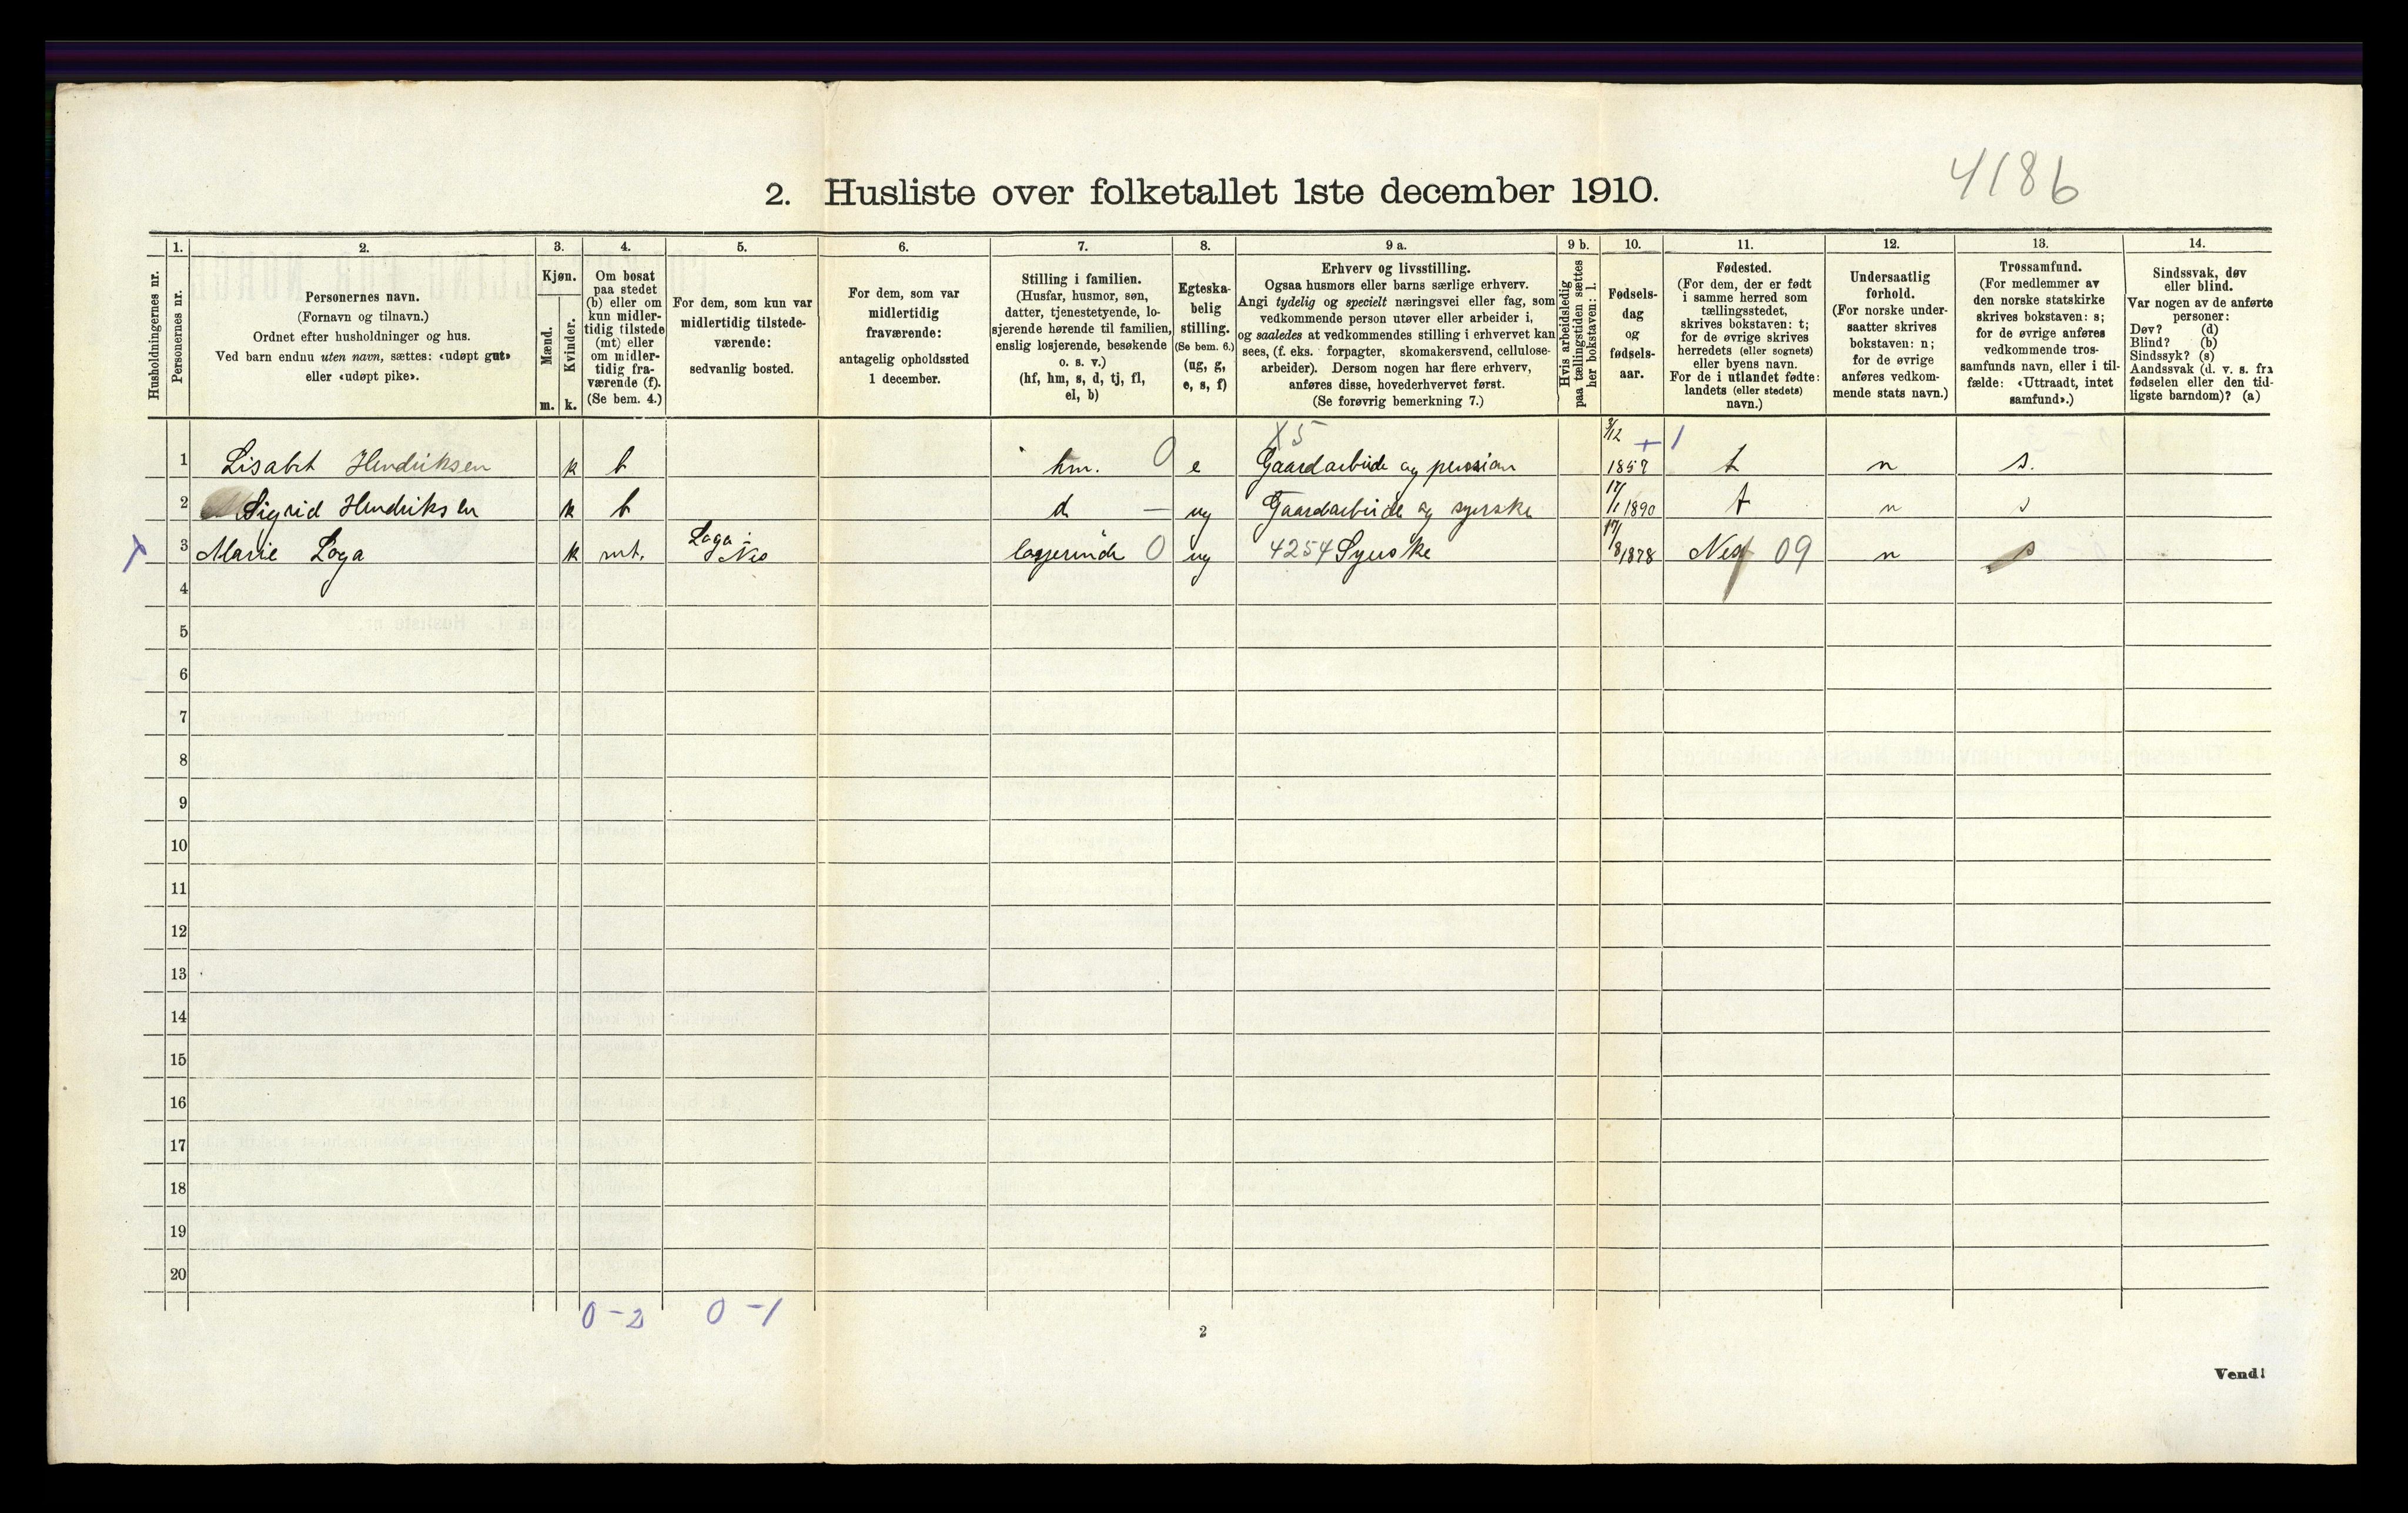 4186
2. Husliste over folketallet 1ste december 1910.
Husholdningernes nr.
1.
Personernes nr.
2.
Personernes navn.
(Fornavn og tilnavn.)
Ordnet efter husholdninger og hus.
Ved barn endnu uten navn, sættes: «udøpt gut»
eller «udøpt pike».
3.
Kjøn.
Mænd.
Kvinder.
m. k.
4.
Om bosat
paa stedet
(b) eller om
kun midler-
tidig tilstede
(mt) eller
om midler-
tidig fra-
værende (f).
(Se bem. 4.)
5.
For dem, som kun var
midlertidig tilstede-
værende:
sedvanlig bosted.
6.
For dem, som var
midlertidig
fraværende:
antagelig opholdssted
1 december.
7.
Stilling i familien.
(Husfar, husmor, søn,
datter, tjenestetyende, lo-
sjerende hørende til familien,
enslig losjerende, besøkende
o. s. v.)
(hf, hm, s, d, tj, fl,
el, b)
8.
Egteska-
belig
stilling.
(Se bem. 6.)
(ug, g,
e, s, f)
9 a.
Erhverv og livsstilling.
Ogsaa husmors eller barns særlige erhverv.
Angi tydelig og specielt næringsvei eller fag, som
vedkommende person utøver eller arbeider i,
og saaledes at vedkommendes stilling i erhvervet kan
sees, (f. eks. forpagter, skomakersvend, cellulose-
arbeider). Dersom nogen har flere erhverv,
anføres disse, hovederhvervet først.
(Se forøvrig bemerkning 7.)
9 b.
Hvis arbeidsledig
paa tællingstiden sættes
her bokstaven: l.
10.
Fødsels-
dag
og
fødsels-
aar.
11.
Fødested.
(For dem, der er født
i samme herred som
tællingsstedet,
skrives bokstaven: t;
for de øvrige skrives
herredets (eller sognets)
eller byens navn.
For de i utlandet fødte:
landets (eller stedets)
navn.)
12.
Undersaatlig
forhold.
(For norske under-
saatter skrives
bokstaven: n;
for de øvrige
anføres vedkom-
mende stats navn.)
13.
Trossamfund.
(For medlemmer av
den norske statskirke
skrives bokstaven: s;
for de øvrige anføres
vedkommende tros-
samfunds navn, eller i til-
fælde: «Uttraadt, intet
samfund».)
14.
Sindssvak, døv
eller blind.
Var nogen av de anførte
personer:
Døv? (d)
Blind? (b)
Sindssyk? (s)
Aandssvak (d. v. s. fra
fødselen eller den tid-
ligste barndom)? (a)
1 Lisabet Hendriksen k b hm. 0 e X5 Gaardarbeide og pension 3/12 1857 + 1 t n s.
2 Sigrid Hendriksen k b d — ug Gaardarbeide og syerske 17/1 1890 t n s
3 Marie Loga k mt. Loga i Nes 0 ug 4254 Syerske 17/8 1878 Nes 09 n s
4
5
6
7
8
9
10
11
12
13
14
15
16
17
18
19
20
0 - 2 0 - 1
2
Vend!